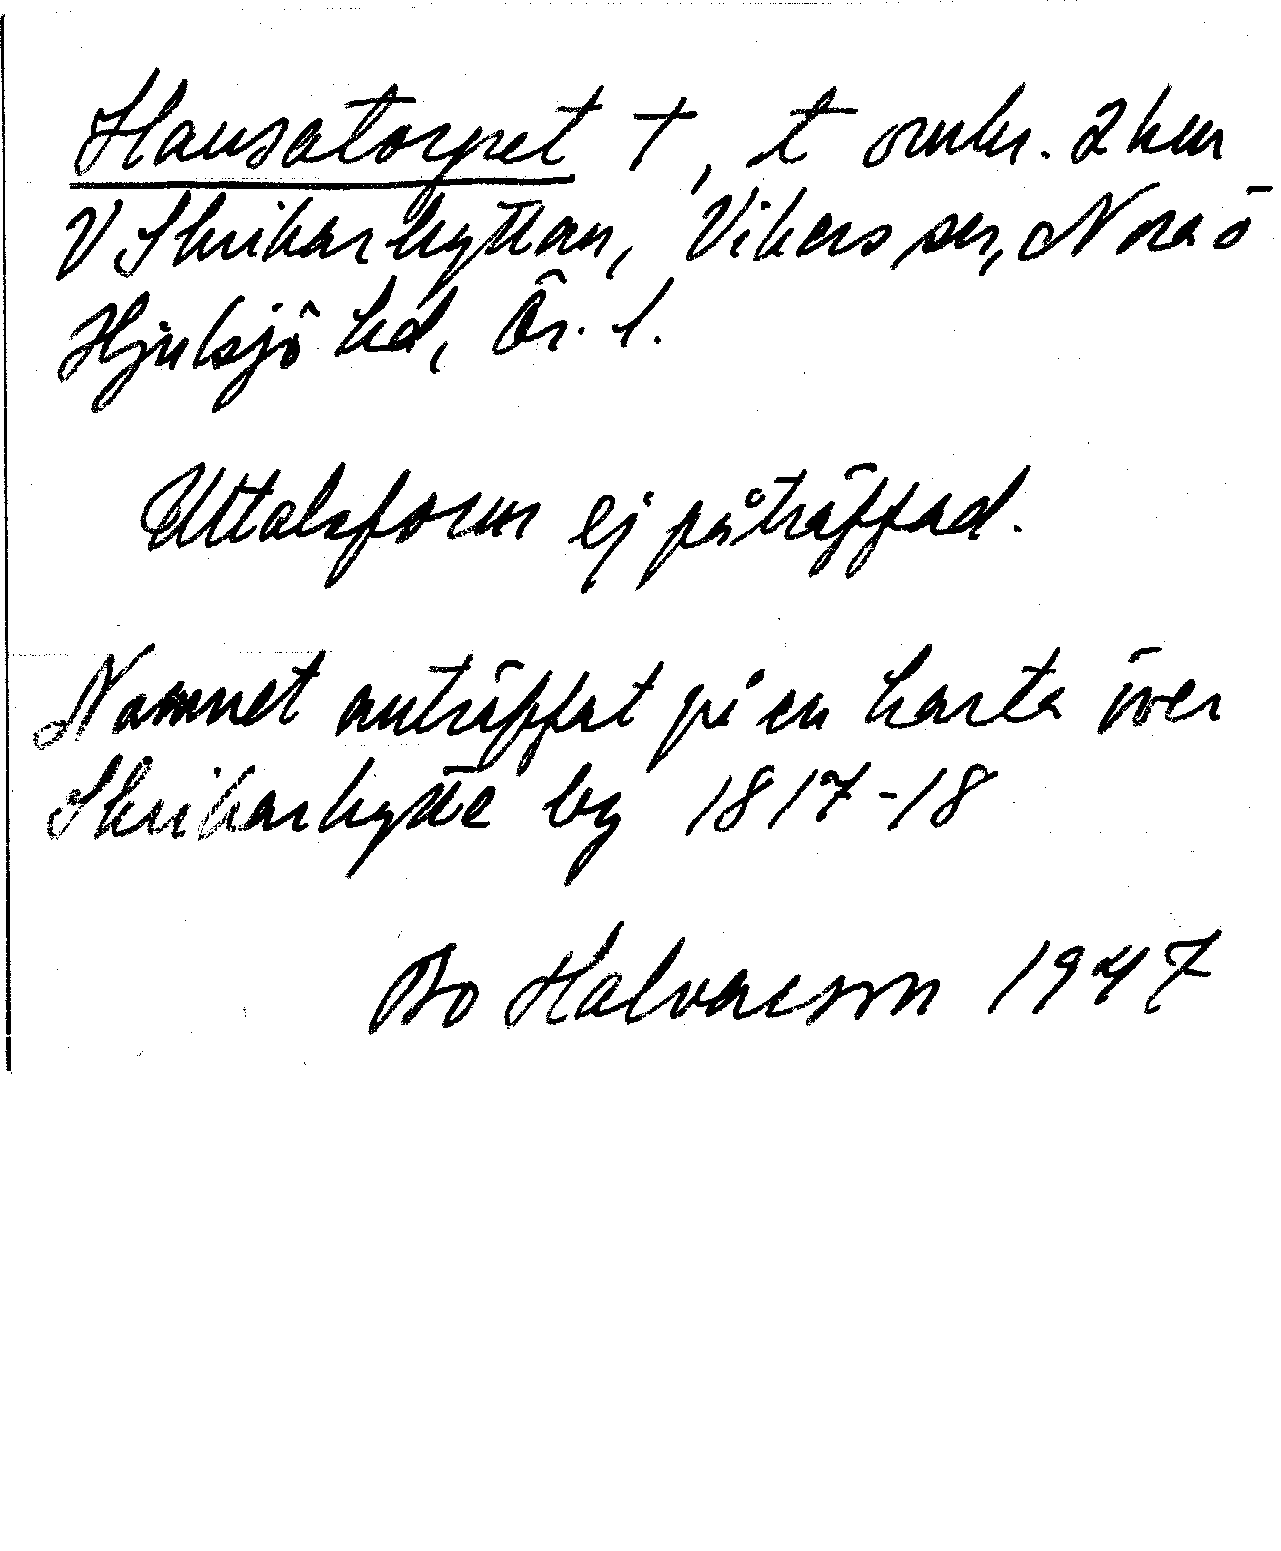 Hansatorpet †, t omkr. 2 km
V Skrikarhyttan, Vikers sn, Nora o
Hjulsjö hd, Ör. l.
Uttalsform ej påträffad.
Namnet anträffat på en karta över
Skrikarhytte by 1817-18
Bo Halvarsson 1947